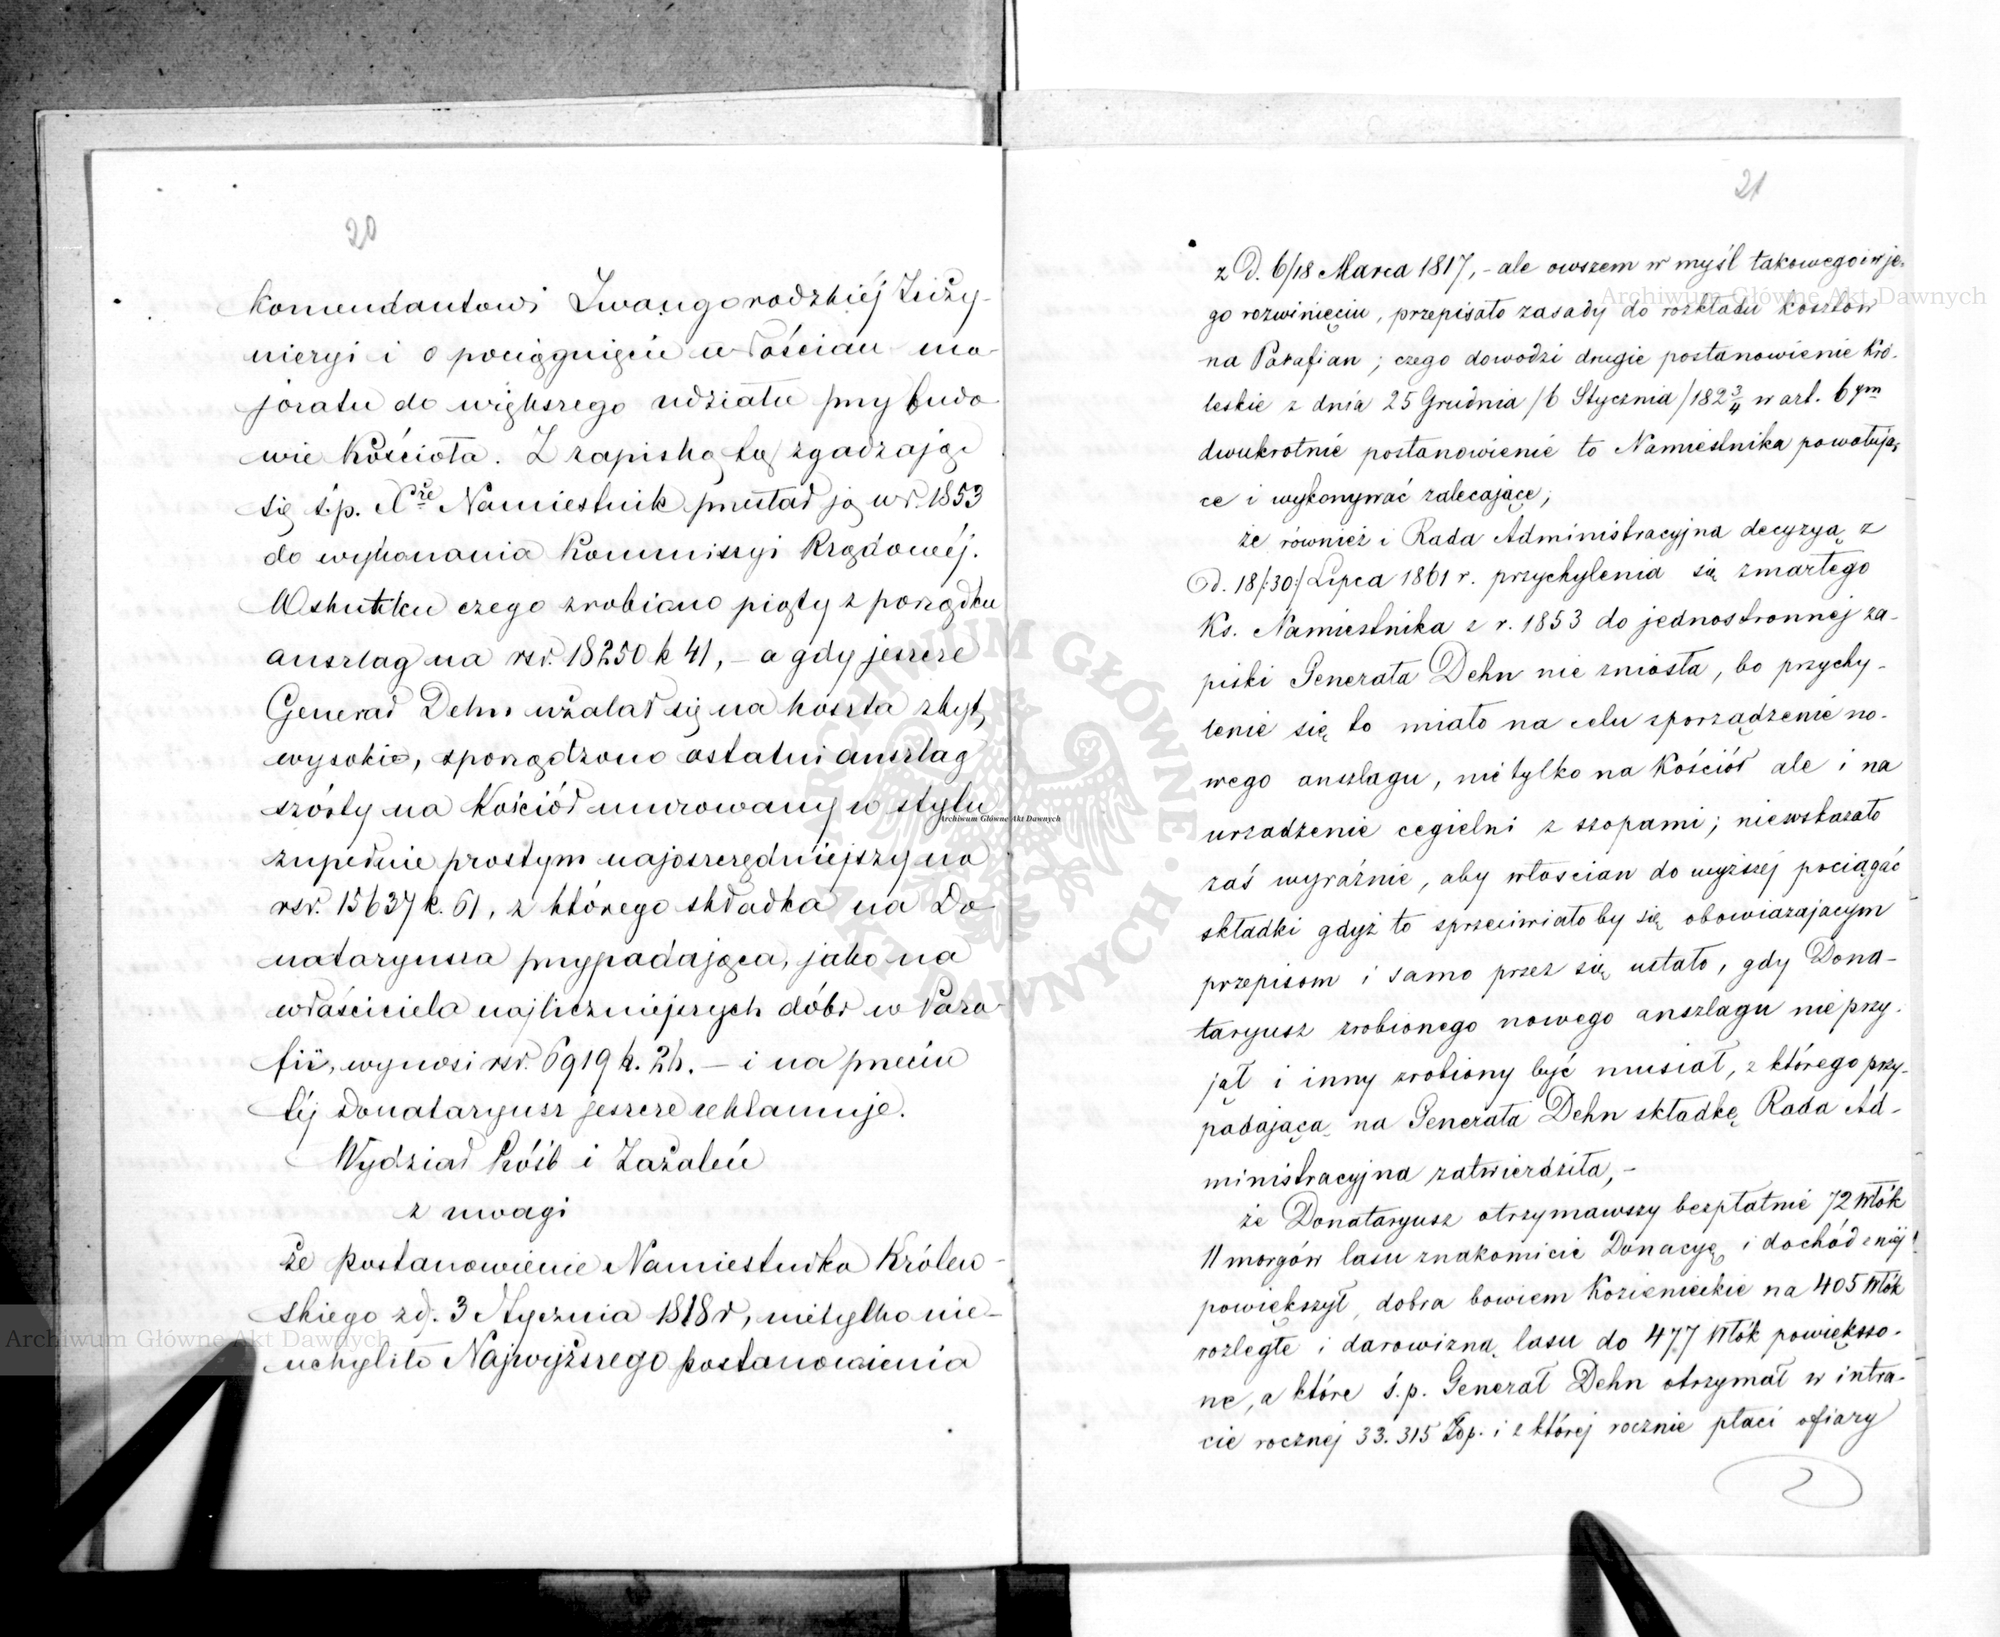 20
Komendantowi Iwangorodzkiéj Inży-
nieryi i o pociągnięcie włościan ma-
joratu do większego udziału przy budo
wie Kościoła. Z zapiską tą zgadzając
się ś.p. Xże Namiestnik przesłał ją w r. 1853
do wykonania Kommissyi Rządowéj.
W skutku czego zrobiono piąty z porządku
anszlag na rsr. 18250 k 41, – a gdy jeszcze
Generał Dehn użalał się na koszta zbyt
wysokie, sporządzono ostatni anszlag
szósty na Kościół murowany w stylu
zupełnie prostym najoszczędniejszy na
rsr. 15637 k. 61, z którego składka na Do
nataryusza przypadająca, jako na
właściciela najliczniejszych dóbr w Para
fii, wynosi rsr. 6919 k. 2½. – i na przeciw
téj Donataryusz jeszcze reklamuje.
Wydział Próśb i Zażaleń
z uwagi
że Postanowienie Namiestnika Królew-
skiego z d. 3 Stycznia 1818 r, nietylko nie-
uchyliło Najwyższego postanowienia
21
z D. 6/18 Marca 1817, – ale owszem w myśl takowego i w je-
go rozwinięciu, przepisało zasady do rozkładu kosztów
na Parafian; czego dowodzi drugie postanowienie Kró-
leskie z dnia 25 Grudnia /6 Stycznia/ 182¾ w art. 6ym
dwukrotnie postanowienie to Namiestnika powołują-
ce i wykonywać zalecające;
że również i Rada Administracyjna decyzyą z
d. 18/:30:/ Lipca 1861 r. przychylenia się zmarłego
Ks. Namiestnika z r. 1853 do jednostronnej za-
piski Generała Dehn nie zniosła, bo przychy-
lenie się to miało na celu sporządzenie no-
wego anszlagu, nie tylko na Kościół ale i na
urządzenie cegielni z szopami; niewskazało
zaś wyraźnie, aby włościan do wyższej pociągać
składki gdyż to sprzeciwiało by się obowiązającym
przepisom i samo przez się ustało, gdy Dona-
taryusz zrobionego nowego anszlagu nie przy-
jął i inny zrobiony być musiał, z którego przy-
padającą na Generała Dehn składkę Rada Ad-
ministracyjna zatwierdziła, –
że Donataryusz otrzymawszy bezpłatnie 72 Włók
11 morgów lasu znakomicie Donacyę i dochód z niéj
powiększył, dobra bowiem Kozienieckie na 405 Włók
rozległe i darowizną lasu do 477 Włók powiększo-
ne, a które ś.p. Generał Dehn otrzymał w intra-
cie rocznej 33.315 Złp. i z której rocznie płaci ofiary
Archiwum Główne Akt Dawnych
Archiwum Główne Akt Dawnych
Archiwum Główne Akt Dawnych
ARCHIWUM GŁÓWNE AKT DAWNYCH